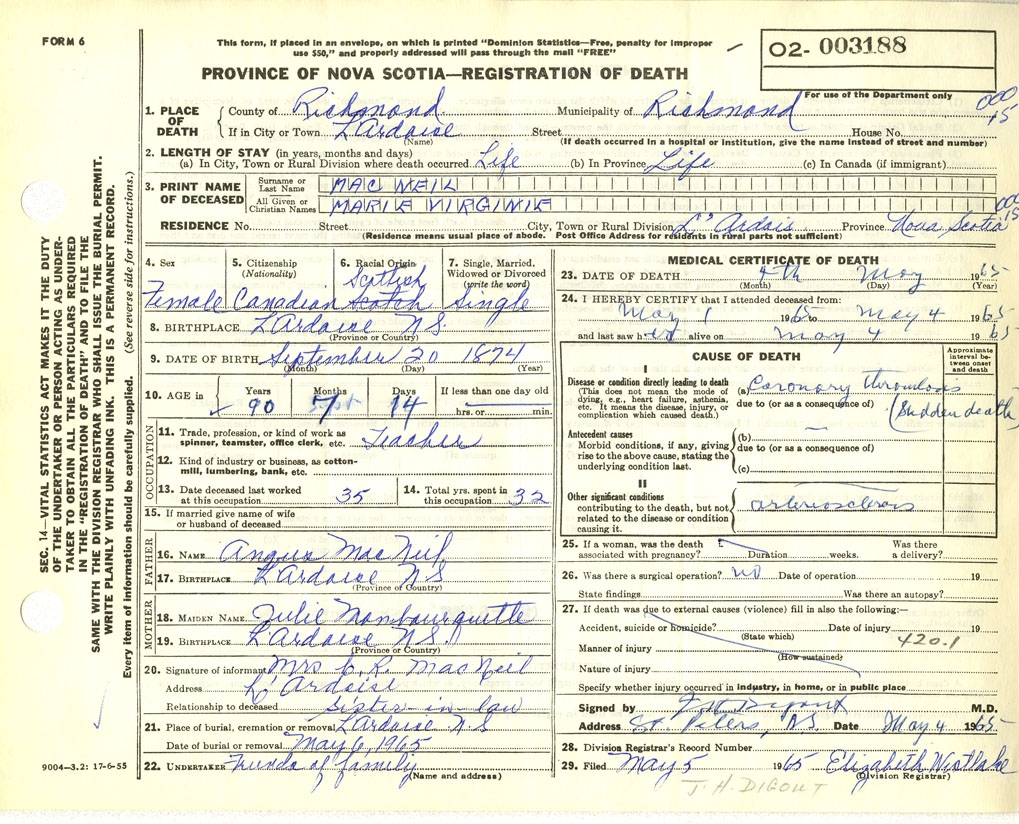 FORM 6
This form, if placed in an envelope, on which is printed "Dominion Statistics—Free, penalty for improper
use $50," and properly addressed will pass through the mail "FREE"
O2- 003188
For use of the Department only
PROVINCE OF NOVA SCOTIA—REGISTRATION OF DEATH
000
15
1. PLACE OF DEATH County of Richmond Municipality of Richmond
If in City or Town L'Ardoise Street House No.
(Name) (If death occurred in a hospital or institution, give the name instead of street and number)
2. LENGTH OF STAY (in years, months and days)
(a) In City, Town or Rural Division where death occurred Life (b) In Province Life (c) In Canada (if immigrant)
3. PRINT NAME OF DECEASED Surname or Last Name MAC NEIL
All Given or Christian Names MARIE VIRGINIE
000
15
RESIDENCE No. Street City, Town or Rural Division L'Ardois Province Nova Scotia
(Residence means usual place of abode. Post Office Address for residents in rural parts not sufficient)
4. Sex 5. Citizenship (Nationality) 6. Racial Origin 7. Single, Married, Widowed or Divorced (write the word)
Scottish
Female Canadian Scotch Single
8. BIRTHPLACE L'Ardoise N.S.
(Province or Country)
9. DATE OF BIRTH September 20 1874
(Month) (Day) (Year)
10. AGE in Years Months Days If less than one day old
90 7 14 hrs. or min.
OCCUPATION
11. Trade, profession, or kind of work as
spinner, teamster, office clerk, etc. Teacher
12. Kind of industry or business, as cotton-
mill, lumbering, bank, etc.
13. Date deceased last worked at this occupation 35 14. Total yrs. spent in this occupation 32
15. If married give name of wife
or husband of deceased
FATHER
16. NAME Angus MacNeil
17. BIRTHPLACE L'Ardoise N S
(Province or Country)
MOTHER
18. MAIDEN NAME Julie Monbourquette
19. BIRTHPLACE L'Ardoise N.S.
(Province or Country)
20. Signature of informant Mrs C. R. MacNeil
Address L'Ardoise
Relationship to deceased Sister-in-law
21. Place of burial, cremation or removal L'Ardoise N-S
Date of burial or removal May 6, 1965
22. UNDERTAKER of family
(Name and address)
MEDICAL CERTIFICATE OF DEATH
23. DATE OF DEATH 4th May 1965
(Month) (Day) (Year)
24. I HEREBY CERTIFY that I attended deceased from:
May 1 1965 to May 4 1965
and last saw her alive on May 4 1965
CAUSE OF DEATH
Approximate interval be-tween onset and death
I
Disease or condition directly leading to death
(This does not mean the mode of
dying, e.g., heart failure, asthenia,
etc. It means the disease, injury, or
complication which caused death.)
(a) Coronary thrombosis
due to (or as a consequence of) (Sudden death)
Antecedent causes
Morbid conditions, if any, giving
rise to the above cause, stating the
underlying condition last.
(b)
due to (or as a consequence of)
(c)
II
Other significant conditions
contributing to the death, but not
related to the disease or condition
causing it.
arteriosclerosis
25. If a woman, was the death Was there
associated with pregnancy? Duration weeks. a delivery?
26. Was there a surgical operation? no Date of operation 19
State findings Was there an autopsy?
27. If death was due to external causes (violence) fill in also the following:—
Accident, suicide or homicide? Date of injury 19
(State which)
420.1
Manner of injury
(How sustained)
Nature of injury
Specify whether injury occurred in industry, in home, or in public place
Signed by J H Digout M.D.
Address St. Peters, N.S. Date May 4 1965
28. Division Registrar's Record Number
29. Filed May 5 1965 Elizabeth Westlake
(Division Registrar)
J. H. DIGOUT
SEC. 14—VITAL STATISTICS ACT MAKES IT THE DUTY
OF THE UNDERTAKER OR PERSON ACTING AS UNDER-
TAKER TO OBTAIN ALL THE PARTICULARS REQUIRED
IN THE "REGISTRATION OF DEATH" AND TO FILE THE
SAME WITH THE DIVISION REGISTRAR WHO SHALL ISSUE THE BURIAL PERMIT.
WRITE PLAINLY WITH UNFADING INK. THIS IS A PERMANENT RECORD.
Every item of information should be carefully supplied. (See reverse side for instructions.)
9004—3.2: 17-6-55